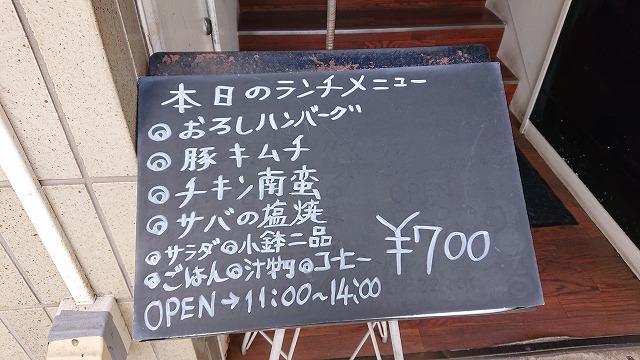 本日のランチメニュー
◎おろしハンバーグ
◎豚キムチ
◎チキン南蛮
◎サバの塩焼
◎サラダ◎小鉢二品
◎ごはん◎汁物◎コーヒー
¥700
OPEN→11:00~14:00